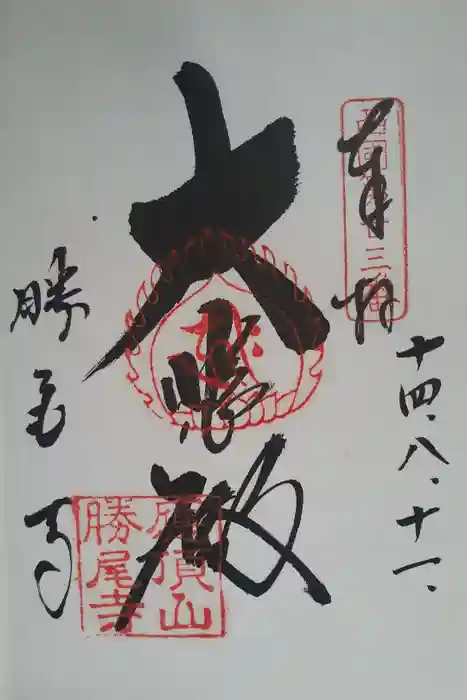 西國第廿三番
奉拝
十四、八、十一、
大悲殿
勝尾寺
應頂山
勝尾寺